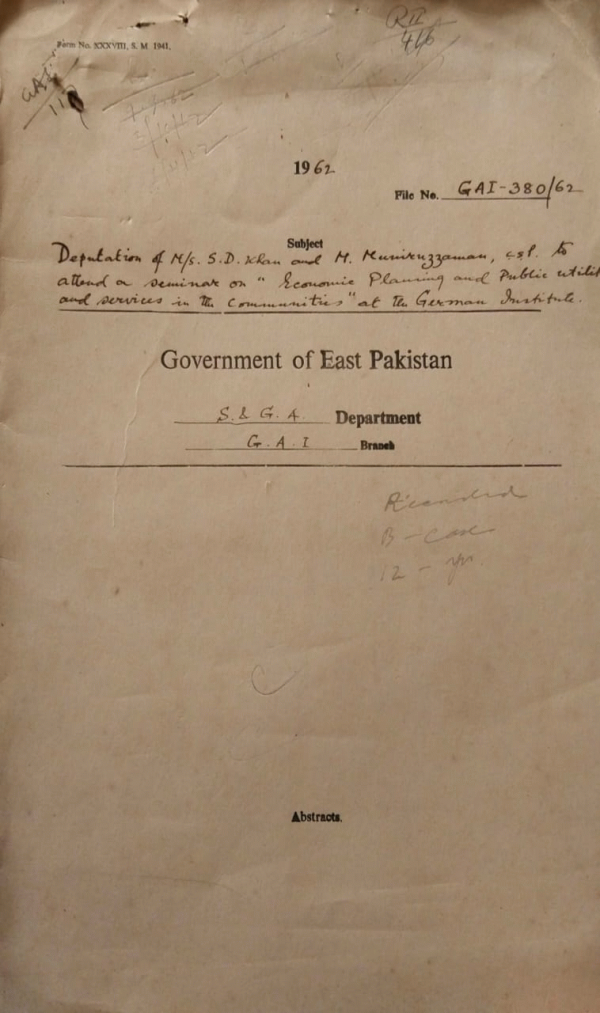 Form No. XXXVIII, S. M. 1941.
RII
GAI
1962
File No. GAI-380/62
Subject
Deputation of M/s. S.D. Khan and M. Muniruzzaman, csp. to
attend a seminar on "Economic Planning and Public utilit
and services in the Communities" at the German Institute.
Government of East Pakistan
S. & G. A. Department
G. A. I Branch
Recorded
B - case
12 - yr.
Abstracts.